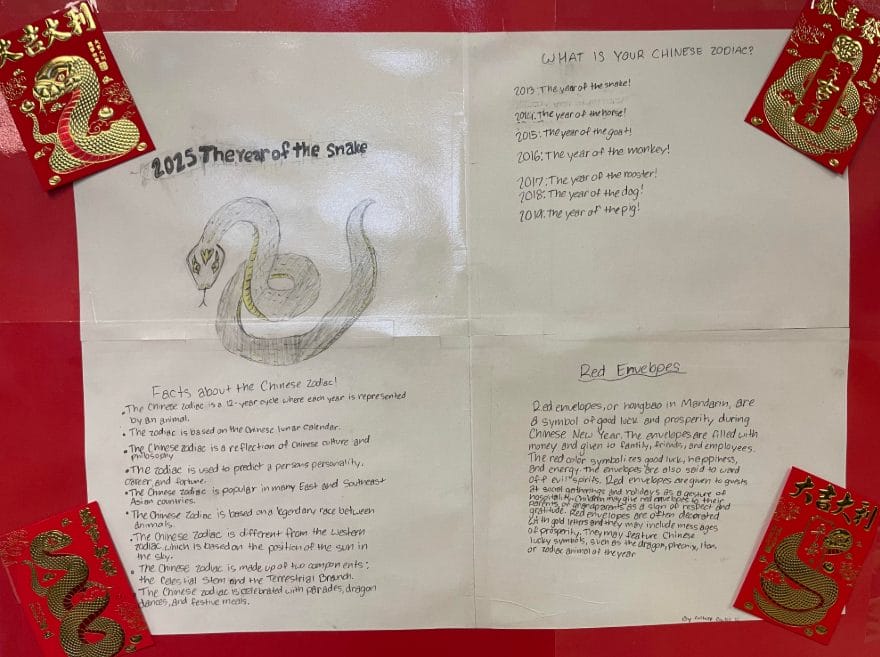 大吉大利
2025 The Year of the Snake
WHAT IS YOUR CHINESE ZODIAC?
2013: The year of the snake!
2014: The year of the horse!
2015: The year of the goat!
2016: The year of the monkey!
2017: The year of the rooster!
2018: The year of the dog!
2019: The year of the pig!
Facts about the Chinese Zodiac!
• The Chinese Zodiac is a 12-year cycle where each year is represented
by an animal.
• The zodiac is based on the Chinese lunar calendar.
• The Chinese zodiac is a reflection of Chinese culture and
philosophy
• The zodiac is used to predict a persons personality,
career, and fortune.
• The Chinese zodiac is popular in many East and Southeast
Asian countries.
• The Chinese Zodiac is based on a legendary race between
animals.
• The Chinese Zodiac is different from the Western
zodiac which is based on the position of the sun in
the sky.
• The Chinese zodiac is made up of two components:
the Celestial Stem and the Terrestrial Branch.
• The Chinese zodiac is celebrated with parades, dragon
dances, and festive meals.
Red Envelopes
Red envelopes, or hongbao in Mandarin, are
a symbol of good luck and prosperity during
Chinese New Year. The envelopes are filled with
money and given to family, friends, and employees.
The red color symbolizes good luck, happiness,
and energy. The envelopes are also said to ward
off evil spirits. Red envelopes are given to guests
at social gatherings and holidays as a gesture of
hospitality. Children may give red envelopes to their
parents or grandparents as a sign of respect and
gratitude. Red envelopes are often decorated
with gold letters and they may include messages
of prosperity. They may feature Chinese
lucky symbols, such as the dragon, pheonix, lion,
or zodiac animal of the year
大吉大利
By